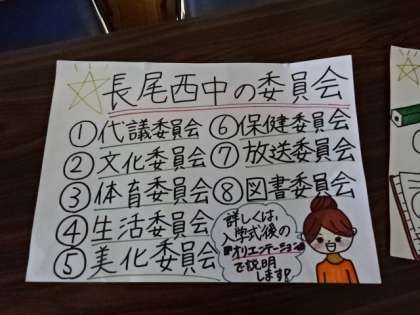 長尾西中の委員会
①代議委員会
②文化委員会
③体育委員会
④生活委員会
⑤美化委員会
⑥保健委員会
⑦放送委員会
⑧図書委員会
詳しくは、
入学式後の
オリエンテーション
で説明
します!!